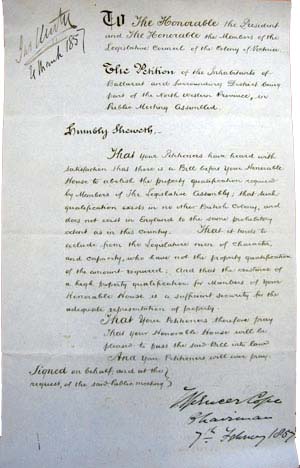 4 March 1857
To The Honorable the President
and The Honorable the Members of the
Legislative Council of the Colony of Victoria.
The Petition of the Inhabitants of
Ballarat and Surrounding District being
part of the North Western Province, in
Public Meeting Assembled.
Humbly Sheweth,
That your Petitioners have heard with
satisfaction that there is a Bill before your Honorable
House to abolish the property qualification required
by Members of The Legislative Assembly; that such
qualification exists in no other British Colony, and
does not exist in England to the same prohibitory
extent as in this Country. That it tends to
exclude from the Legislature men of character,
and capacity, who have not the property qualification
of the amount required; And that the existence of
a high property qualification for Members of your
Honorable House is a sufficient security for the
adequate representation of property.
That Your Petitioners therefore pray
that your Honorable House will be
pleased to pass the said Bill into law
And Your Petitioners will ever pray.
Signed on behalf, and at the
request, of the said public meeting
Spencer Cope
Chairman
7th February 1857